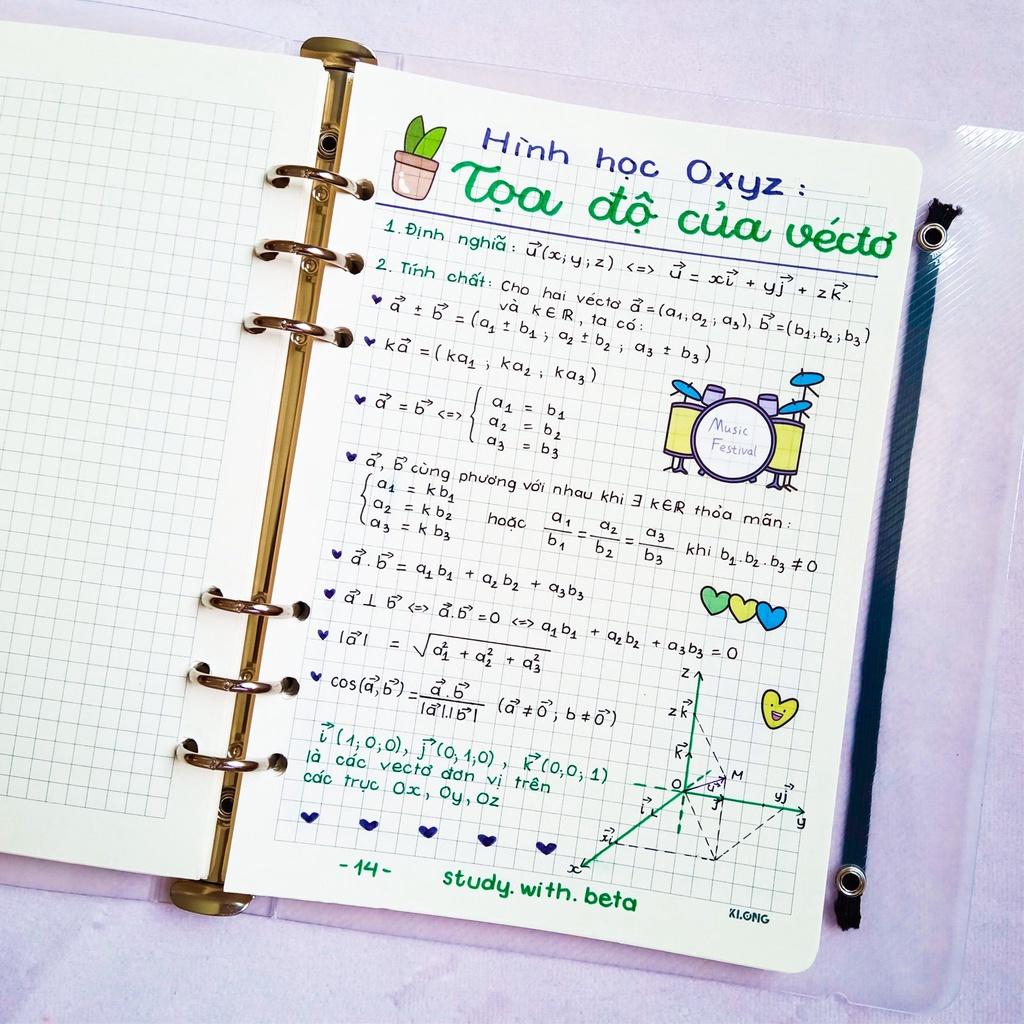 Hình học Oxyz:
Tọa độ của véctơ
1. Định nghiã: u⃗(x; y; z) <=> u⃗ = xi⃗ + yj⃗ + zk⃗.
2. Tính chất: Cho hai véctơ a⃗ = (a₁; a₂; a₃), b⃗ = (b₁; b₂; b₃)
và k ∈ ℝ, ta có:
a⃗ ± b⃗ = (a₁ ± b₁ ; a₂ ± b₂ ; a₃ ± b₃)
ka⃗ = (ka₁ ; ka₂ ; ka₃)
a⃗ = b⃗ <=> { a₁ = b₁
a₂ = b₂
a₃ = b₃
Music
Festival
a⃗, b⃗ cùng phương với nhau khi ∃ k∈ℝ thỏa mãn:
{ a₁ = kb₁
a₂ = kb₂
a₃ = kb₃
hoặc a₁/b₁ = a₂/b₂ = a₃/b₃ khi b₁.b₂.b₃ ≠ 0
a⃗.b⃗ = a₁b₁ + a₂b₂ + a₃b₃
a⃗ ⊥ b⃗ <=> a⃗.b⃗ = 0 <=> a₁b₁ + a₂b₂ + a₃b₃ = 0
|a⃗| = √(a₁² + a₂² + a₃²)
cos(a⃗,b⃗) = a⃗.b⃗/|a⃗|.|b⃗| (a⃗ ≠ 0⃗ ; b ≠ 0⃗)
i⃗(1; 0; 0), j⃗(0; 1; 0), k⃗(0; 0; 1)
là các vectơ đơn vị trên
các trục Ox, Oy, Oz
z
zk⃗
k⃗
O
M
u⃗
j⃗
yj⃗
y
i⃗
xi⃗
x
-14-
study.with.beta
KLONG